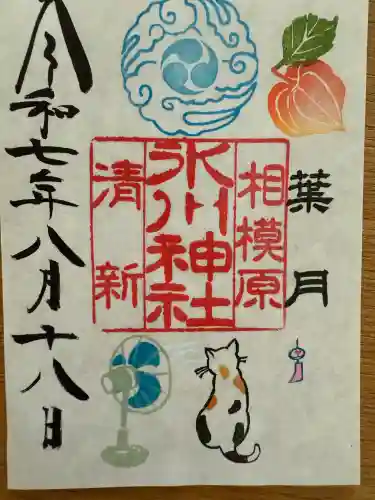 葉月
相模原
氷川神社
清新
令和七年八月十八日